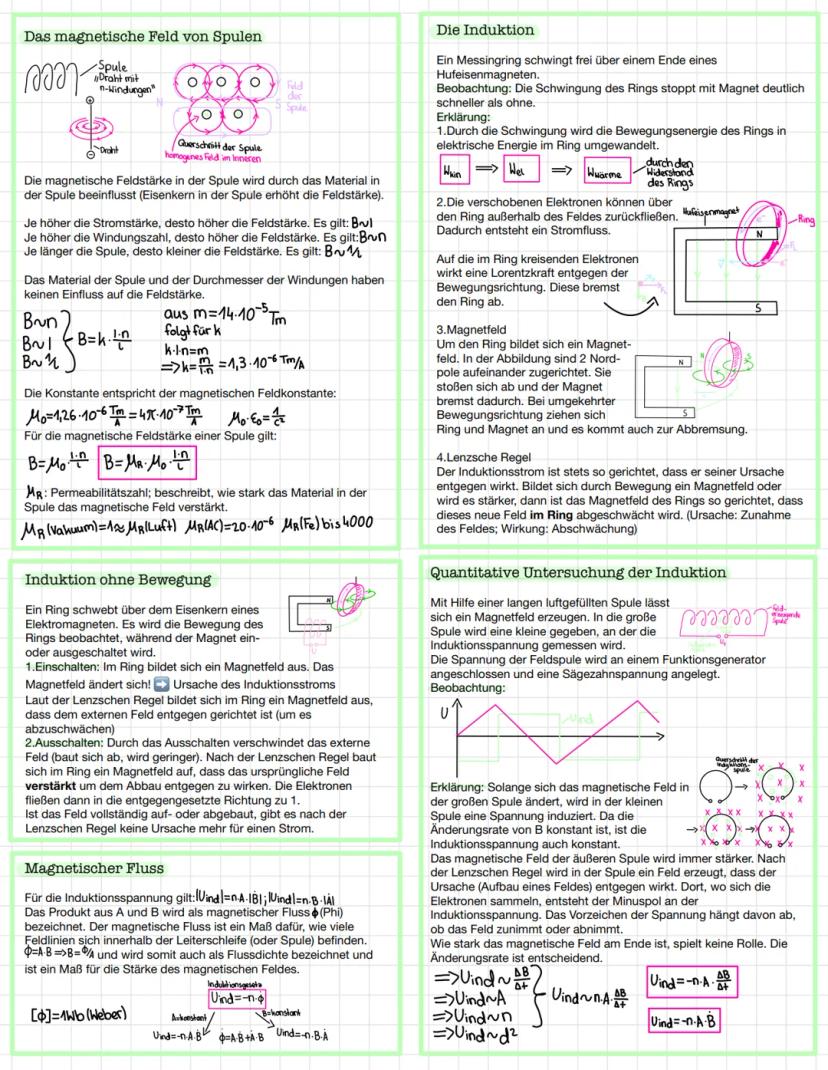 Das magnetische Feld von Spulen
Spule
"Draht mit
n-Windungen"
Draht
Feld
der
Spule
N
S
Querschnitt der Spule
homogenes Feld im Inneren
Die magnetische Feldstärke in der Spule wird durch das Material in
der Spule beeinflusst (Eisenkern in der Spule erhöht die Feldstärke).
Je höher die Stromstärke, desto höher die Feldstärke. Es gilt: B~I
Je höher die Windungszahl, desto höher die Feldstärke. Es gilt: B~n
Je länger die Spule, desto kleiner die Feldstärke. Es gilt: B~1/l
Das Material der Spule und der Durchmesser der Windungen haben
keinen Einfluss auf die Feldstärke.
B~n
B~I
B~1/l
B=k·I·n/l
aus m=14·10⁻⁵Tm
folgt für k
k·I·n=m
=>k=m/I·n=1,3·10⁻⁶Tm/A
Die Konstante entspricht der magnetischen Feldkonstante:
μ₀=1,26·10⁻⁶Tm/A=4π·10⁻⁷Tm/A μ₀·ε₀=1/c²
Für die magnetische Feldstärke einer Spule gilt:
B=μ₀·I·n/l B=μR·μ₀·I·n/l
μR: Permeabilitätszahl; beschreibt, wie stark das Material in der
Spule das magnetische Feld verstärkt.
μR(Vakuum)=1≈μR(Luft) μR(AC)=20·10⁻⁶ μR(Fe) bis 4000
Die Induktion
Ein Messingring schwingt frei über einem Ende eines
Hufeisenmagneten.
Beobachtung: Die Schwingung des Rings stoppt mit Magnet deutlich
schneller als ohne.
Erklärung:
1.Durch die Schwingung wird die Bewegungsenergie des Rings in
elektrische Energie im Ring umgewandelt.
Wkin => Wel => Wwärme
durch den
Widerstand
des Rings
2.Die verschobenen Elektronen können über
den Ring außerhalb des Feldes zurückfließen.
Dadurch entsteht ein Stromfluss.
Hufeisenmagnet
Ring
N
S
Auf die im Ring kreisenden Elektronen
wirkt eine Lorentzkraft entgegen der
Bewegungsrichtung. Diese bremst
den Ring ab.
3.Magnetfeld
Um den Ring bildet sich ein Magnet-
feld. In der Abbildung sind 2 Nord-
pole aufeinander zugerichtet. Sie
stoßen sich ab und der Magnet
bremst dadurch. Bei umgekehrter
Bewegungsrichtung ziehen sich
Ring und Magnet an und es kommt auch zur Abbremsung.
N
N
S
S
4.Lenzsche Regel
Der Induktionsstrom ist stets so gerichtet, dass er seiner Ursache
entgegen wirkt. Bildet sich durch Bewegung ein Magnetfeld oder
wird es stärker, dann ist das Magnetfeld des Rings so gerichtet, dass
dieses neue Feld im Ring abgeschwächt wird. (Ursache: Zunahme
des Feldes; Wirkung: Abschwächung)
Induktion ohne Bewegung
Ein Ring schwebt über dem Eisenkern eines
Elektromagneten. Es wird die Bewegung des
Rings beobachtet, während der Magnet ein-
oder ausgeschaltet wird.
N
S
U
1.Einschalten: Im Ring bildet sich ein Magnetfeld aus. Das
Magnetfeld ändert sich! ➡ Ursache des Induktionsstroms
Laut der Lenzschen Regel bildet sich im Ring ein Magnetfeld aus,
dass dem externen Feld entgegen gerichtet ist (um es
abzuschwächen)
2.Ausschalten: Durch das Ausschalten verschwindet das externe
Feld (baut sich ab, wird geringer). Nach der Lenzschen Regel baut
sich im Ring ein Magnetfeld auf, dass das ursprüngliche Feld
verstärkt um dem Abbau entgegen zu wirken. Die Elektronen
fließen dann in die entgegengesetzte Richtung zu 1.
Ist das Feld vollständig auf- oder abgebaut, gibt es nach der
Lenzschen Regel keine Ursache mehr für einen Strom.
Magnetischer Fluss
Für die Induktionsspannung gilt:|Uind|=n·A·|Ḃ|; |Uind|=n·B·|Ȧ|
Das Produkt aus A und B wird als magnetischer Fluss ϕ(Phi)
bezeichnet. Der magnetische Fluss ist ein Maß dafür, wie viele
Feldlinien sich innerhalb der Leiterschleife (oder Spule) befinden.
ϕ=A·B=>B=ϕ/A und wird somit auch als Flussdichte bezeichnet und
ist ein Maß für die Stärke des magnetischen Feldes.
Induktionsgesetz
Uind=-n·ϕ̇
[ϕ]=1Wb (Weber)
A=konstant
B=konstant
Uind=-n·A·Ḃ
ϕ̇=A·Ḃ+Ȧ·B
Uind=-n·B·Ȧ
Quantitative Untersuchung der Induktion
Mit Hilfe einer langen luftgefüllten Spule lässt
sich ein Magnetfeld erzeugen. In die große
Spule wird eine kleine gegeben, an der die
Induktionsspannung gemessen wird.
Feld-
erzeugende
Spule
Die Spannung der Feldspule wird an einem Funktionsgenerator
angeschlossen und eine Sägezahnspannung angelegt.
Beobachtung:
U
Uind
Querschnitt der
Induktions-
spule
Erklärung: Solange sich das magnetische Feld in
der großen Spule ändert, wird in der kleinen
Spule eine Spannung induziert. Da die
Änderungsrate von B konstant ist, ist die
Induktionsspannung auch konstant.
Das magnetische Feld der äußeren Spule wird immer stärker. Nach
der Lenzschen Regel wird in der Spule ein Feld erzeugt, dass der
Ursache (Aufbau eines Feldes) entgegen wirkt. Dort, wo sich die
Elektronen sammeln, entsteht der Minuspol an der
Induktionsspannung. Das Vorzeichen der Spannung hängt davon ab,
ob das Feld zunimmt oder abnimmt.
Wie stark das magnetische Feld am Ende ist, spielt keine Rolle. Die
Änderungsrate ist entscheidend.
=>Uind~ΔB/Δt
=>Uind~A
=>Uind~n
=>Uind~d²
Uind~n·A·ΔB/Δt
Uind=-n·A·ΔB/Δt
Uind=-n·A·Ḃ